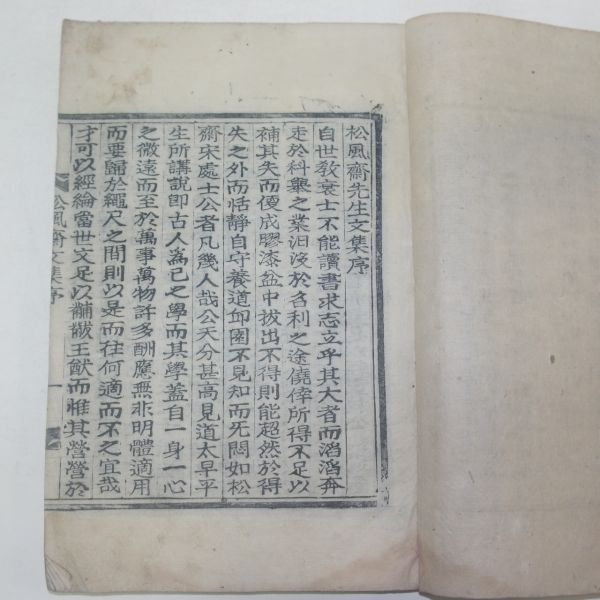 松風齋先生文集序
自世敎衰士不能讀書求志立乎其大者而滔滔奔
走於科擧之業汨沒於名利之途僥倖所得不足以
補其失而便成膠漆盆中拔出不得則能超然於得
失之外而恬靜自守養道邱園不見知而无悶如松
齋宋處士公者凡幾人哉公天分甚高見道太早平
生所講說卽古人爲己之學而其學盖自一身一心
之微遠而至於萬事萬物許多酬應無非明體適用
而要歸於繩尺之間則以是而往何適而不之宜哉
才可以經綸當世文足以黼黻王猷而惟其營營於
松風齋文集序
一